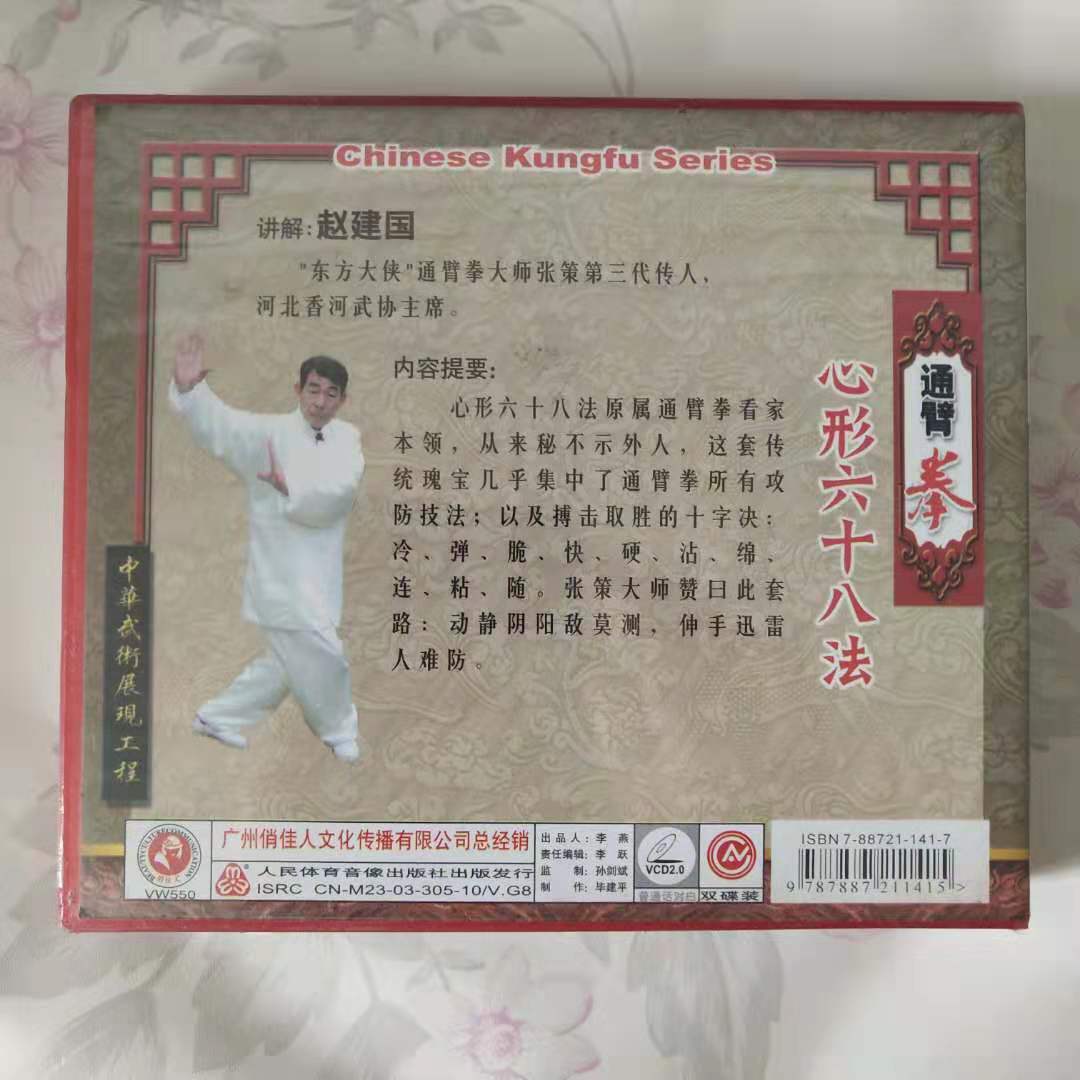 Chinese Kungfu Series
讲解:赵建国
"东方大侠"通臂拳大师张策第三代传人,
河北香河武协主席。
通臂拳
心形六十八法
内容提要:
心形六十八法原属通臂拳看家
本领,从来秘不示外人,这套传
统瑰宝几乎集中了通臂拳所有攻
防技法;以及搏击取胜的十字决:
冷、弹、脆、快、硬、沾、绵、
连、粘、随。张策大师赞曰此套
路:动静阴阳敌莫测,伸手迅雷
人难防。
中華武術展現工程
VW550
广州俏佳人文化传播有限公司总经销
人民体育音像出版社出版发行
ISRC CN-M23-03-305-10/V.G8
出品人:李燕
责任编辑:李跃
监制:孙剑斌
制作:毕建平
VCD2.0
普通话对白
双碟装
ISBN7-88721-141-7
9 787887 211415 >